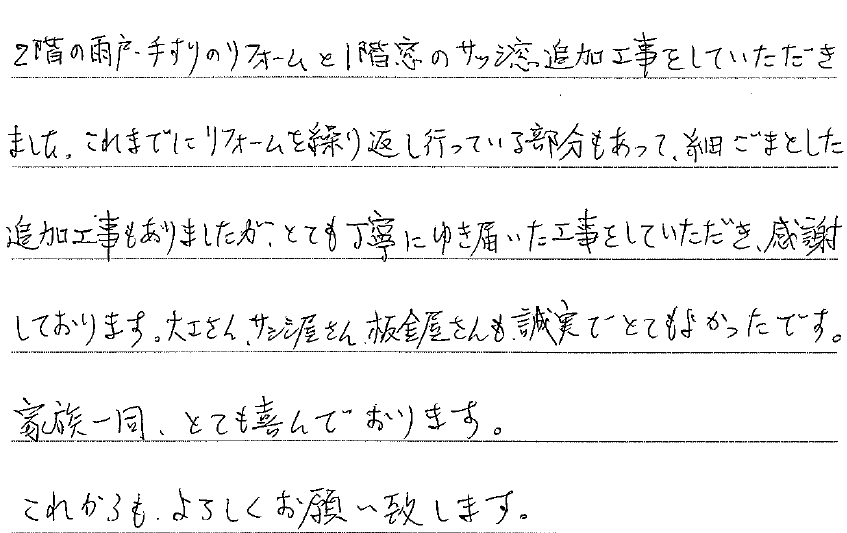 2階の雨戸・手すりのリフォームと1階窓のサッシ窓追加工事をしていただき
ました。これまでにリフォームを繰り返し行っている部分もあって、細ごまとした
追加工事もありましたが、とても丁寧にゆき届いた工事をしていただき、感謝
しております。大工さん、サッシ屋さん、板金屋さんも、誠実でとてもよかったです。
家族一同、とても喜んでおります。
これからも、よろしくお願い致します。